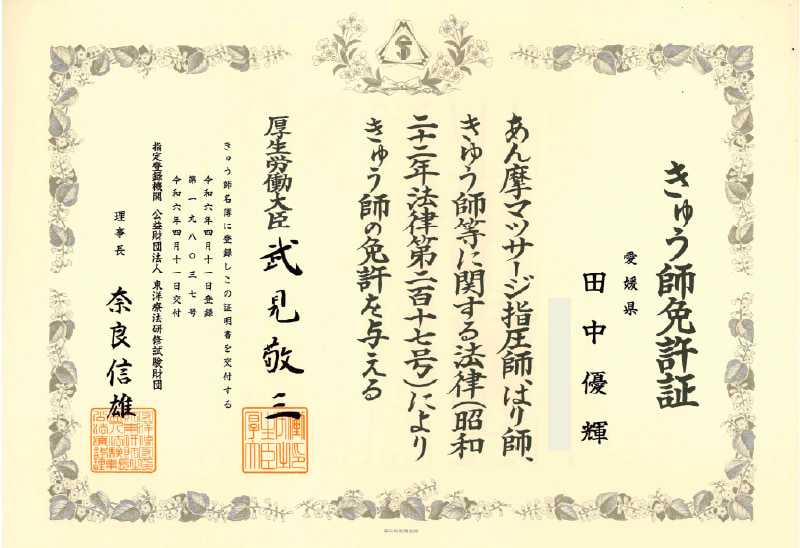 きゅう師免許証
愛媛県
田中優輝
あん摩マツサージ指圧師、はり師、
きゅう師等に関する法律(昭和
二十二年法律第二百十七号)により
きゅう師の免許を与える
厚生労働大臣 武見敬三
きゅう師名簿に登録しこの証明書を交付する
令和六年四月十一日登録
第一九八〇三七号
令和六年四月十一日交付
指定登録機関 公益財団法人 東洋療法研修試験財団
理事長 奈良信雄